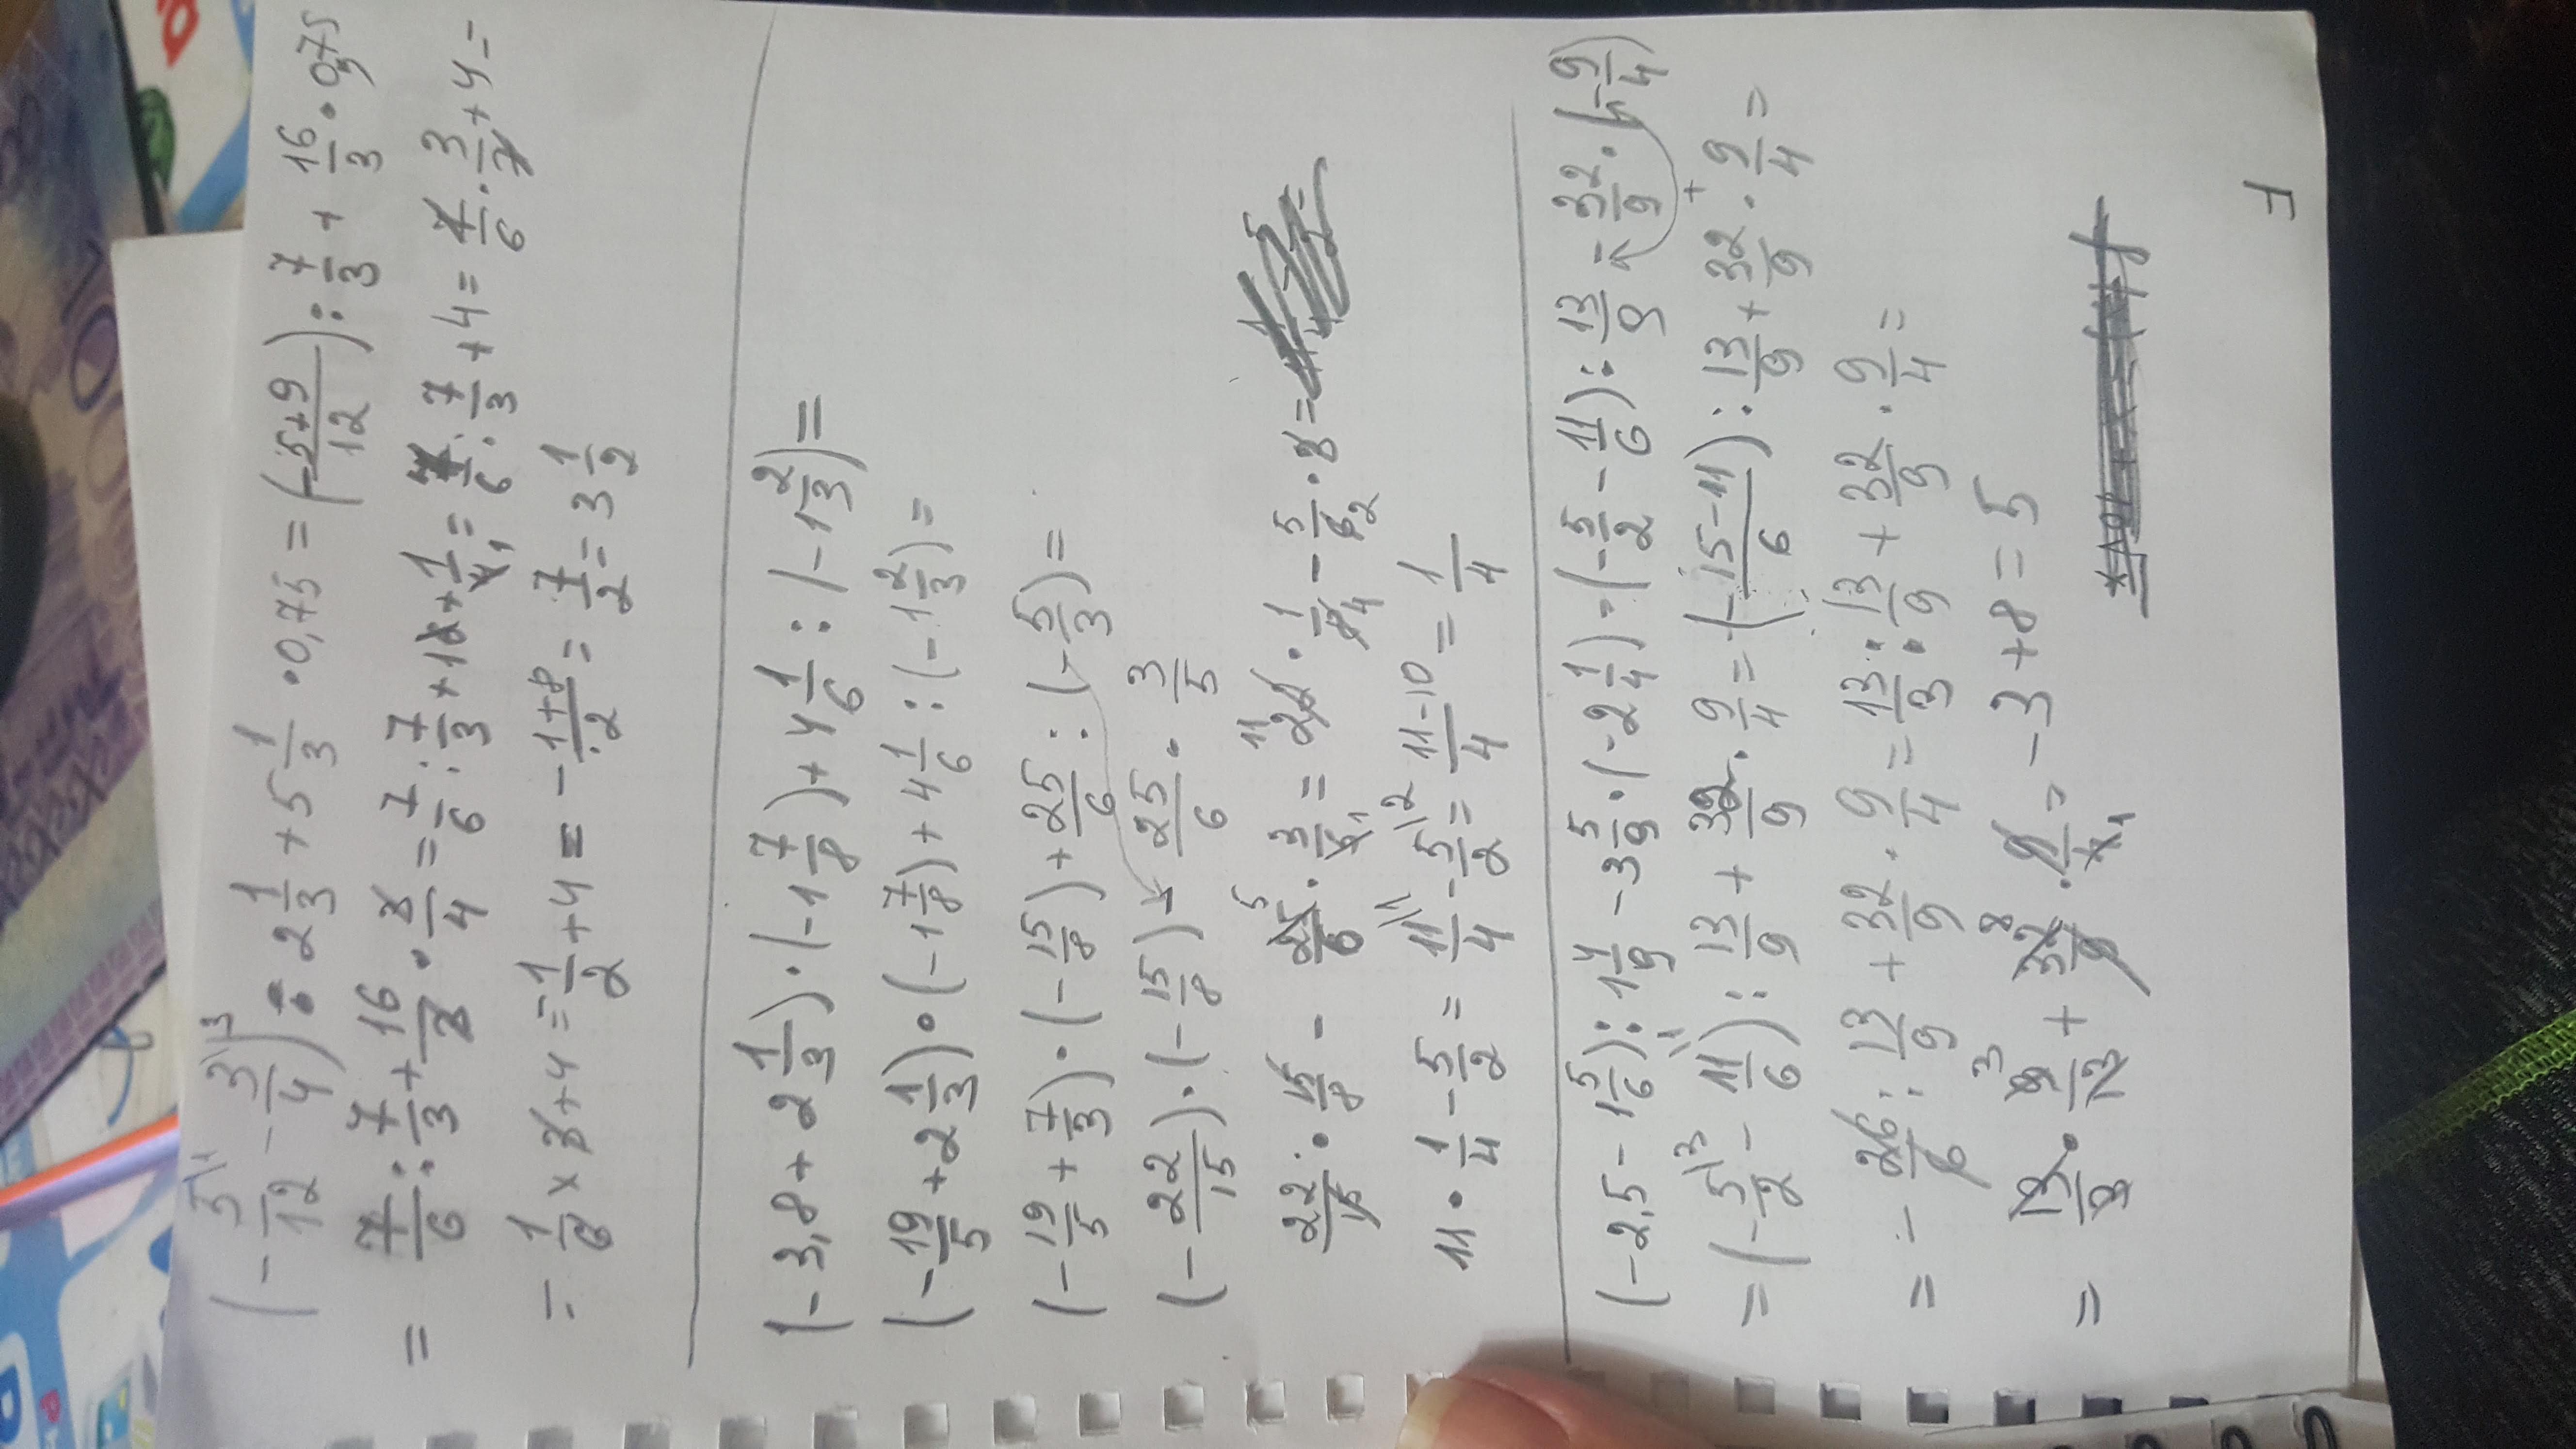 (-5/12 - 3/4) : 2 1/3 + 5 1/3 · 0,75 = (-5+9/12) : 7/3 + 16/3 · 0,75
= 7/6 : 7/3 + 16/3 · 3/4 = 7/6 : 7/3 + 1/1 = 7/6 : 7/3 + 4 = 7/6 · 3/7 + 4 =
= 1/6 × 3 + 4 = -1/2 + 4 = -1+8/2 = 7/2 = 3 1/2
(-3,8 + 2 1/3) · (-1 7/8) + 4 1/6 : (-1 2/3) =
(-19/5 + 2 1/3) · (-1 7/8) + 4 1/6 : (-1 2/3) =
(-19/5 + 7/3) · (-15/8) + 25/6 : (-5/3) =
(-22/15) · (-15/8) - 25/6 · 3/5
22/15 · 15/8 - 25/6 · 3/5 = 22 · 1/8 - 5/2
11 · 1/4 - 5/2 = 11/4 - 5/2 = 11-10/4 = 1/4
(-2,5 - 1 5/6) : 1 4/9 - 3 5/9 · (-2 1/4) = (-5/2 - 11/6) : 13/9 - 32/9 · (-9/4)
= (-5/2 - 11/6) : 13/9 + 32/9 · 9/4 = (-15-11/6) : 13/9 + 32/9 · 9/4 =
= -26/6 : 13/9 + 32/9 · 9/4 = 13/3 : 13/9 + 32/9 · 9/4 =
= 13/3 · 9/13 + 32/9 · 9/4 = -3 + 8 = 5